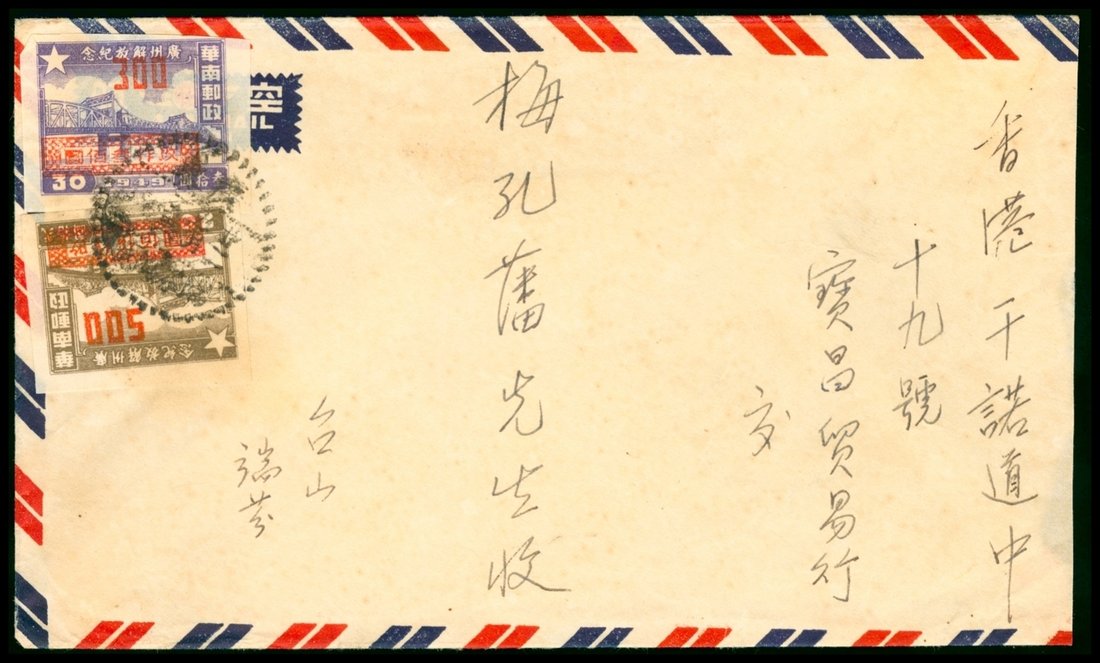 香港干諾道中
十九號
寶昌贸易行
交
梅孔藩先生收
台山
端芬
廣州解放紀念
華南郵政
300
改作叁佰圓
30
1949
叁拾圓
廣州解放紀念
華南郵政
500
空